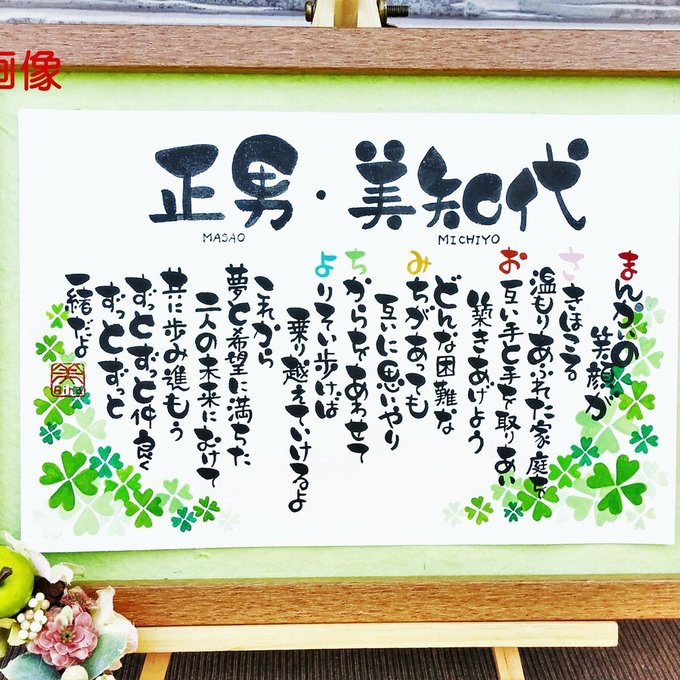 画像
正男・美知代
MASAO
MICHIYO
まんかいの
笑顔が
さきほこる
温もりあふれた家庭を
お互い手と手を取りあい
築きあげよう
どんな困難な
みちがあっても
互いに思いやり
ちからをあわせて
よりそい歩けば
乗り越えていけるよ
これから
夢と希望に満ちた
二人の未来にむけて
共に歩み進もう
ずっとずっと仲良く
ずっとずっと
一緒だよ
美